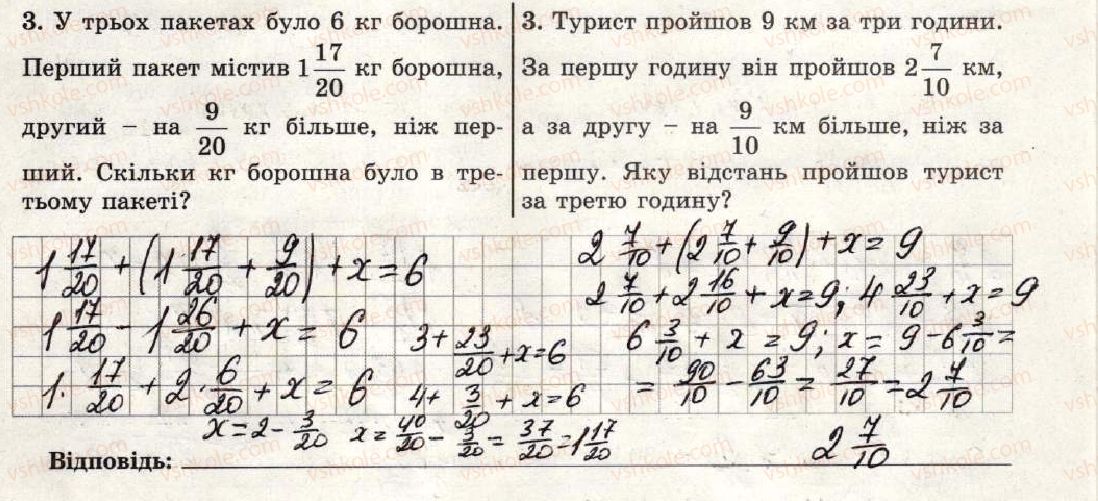 3. У трьох пакетах було 6 кг борошна.
Перший пакет містив 1 17/20 кг борошна,
другий – на 9/20 кг більше, ніж пер-
ший. Скільки кг борошна було в тре-
тьому пакеті?
1 17/20 + (1 17/20 + 9/20) + x = 6
1 17/20 - 1 26/20 + x = 6
3 + 23/20 + x = 6
1. 17/20 + 2. 6/20 + x = 6
4 + 3/20 + x = 6
x = 2 - 3/20 x = 40/20 - 3/20 = 37/20 = 1 17/20
3. Турист пройшов 9 км за три години.
За першу годину він пройшов 2 7/10 км,
а за другу – на 9/10 км більше, ніж за
першу. Яку відстань пройшов турист
за третю годину?
2 7/10 + (2 7/10 + 9/10) + x = 9
2 7/10 + 2 16/10 + x = 9; 4 23/10 + x = 9
6 3/10 + x = 9; x = 9 - 6 3/10 =
= 90/10 - 63/10 = 27/10 = 2 7/10
Відповідь: 2 7/10